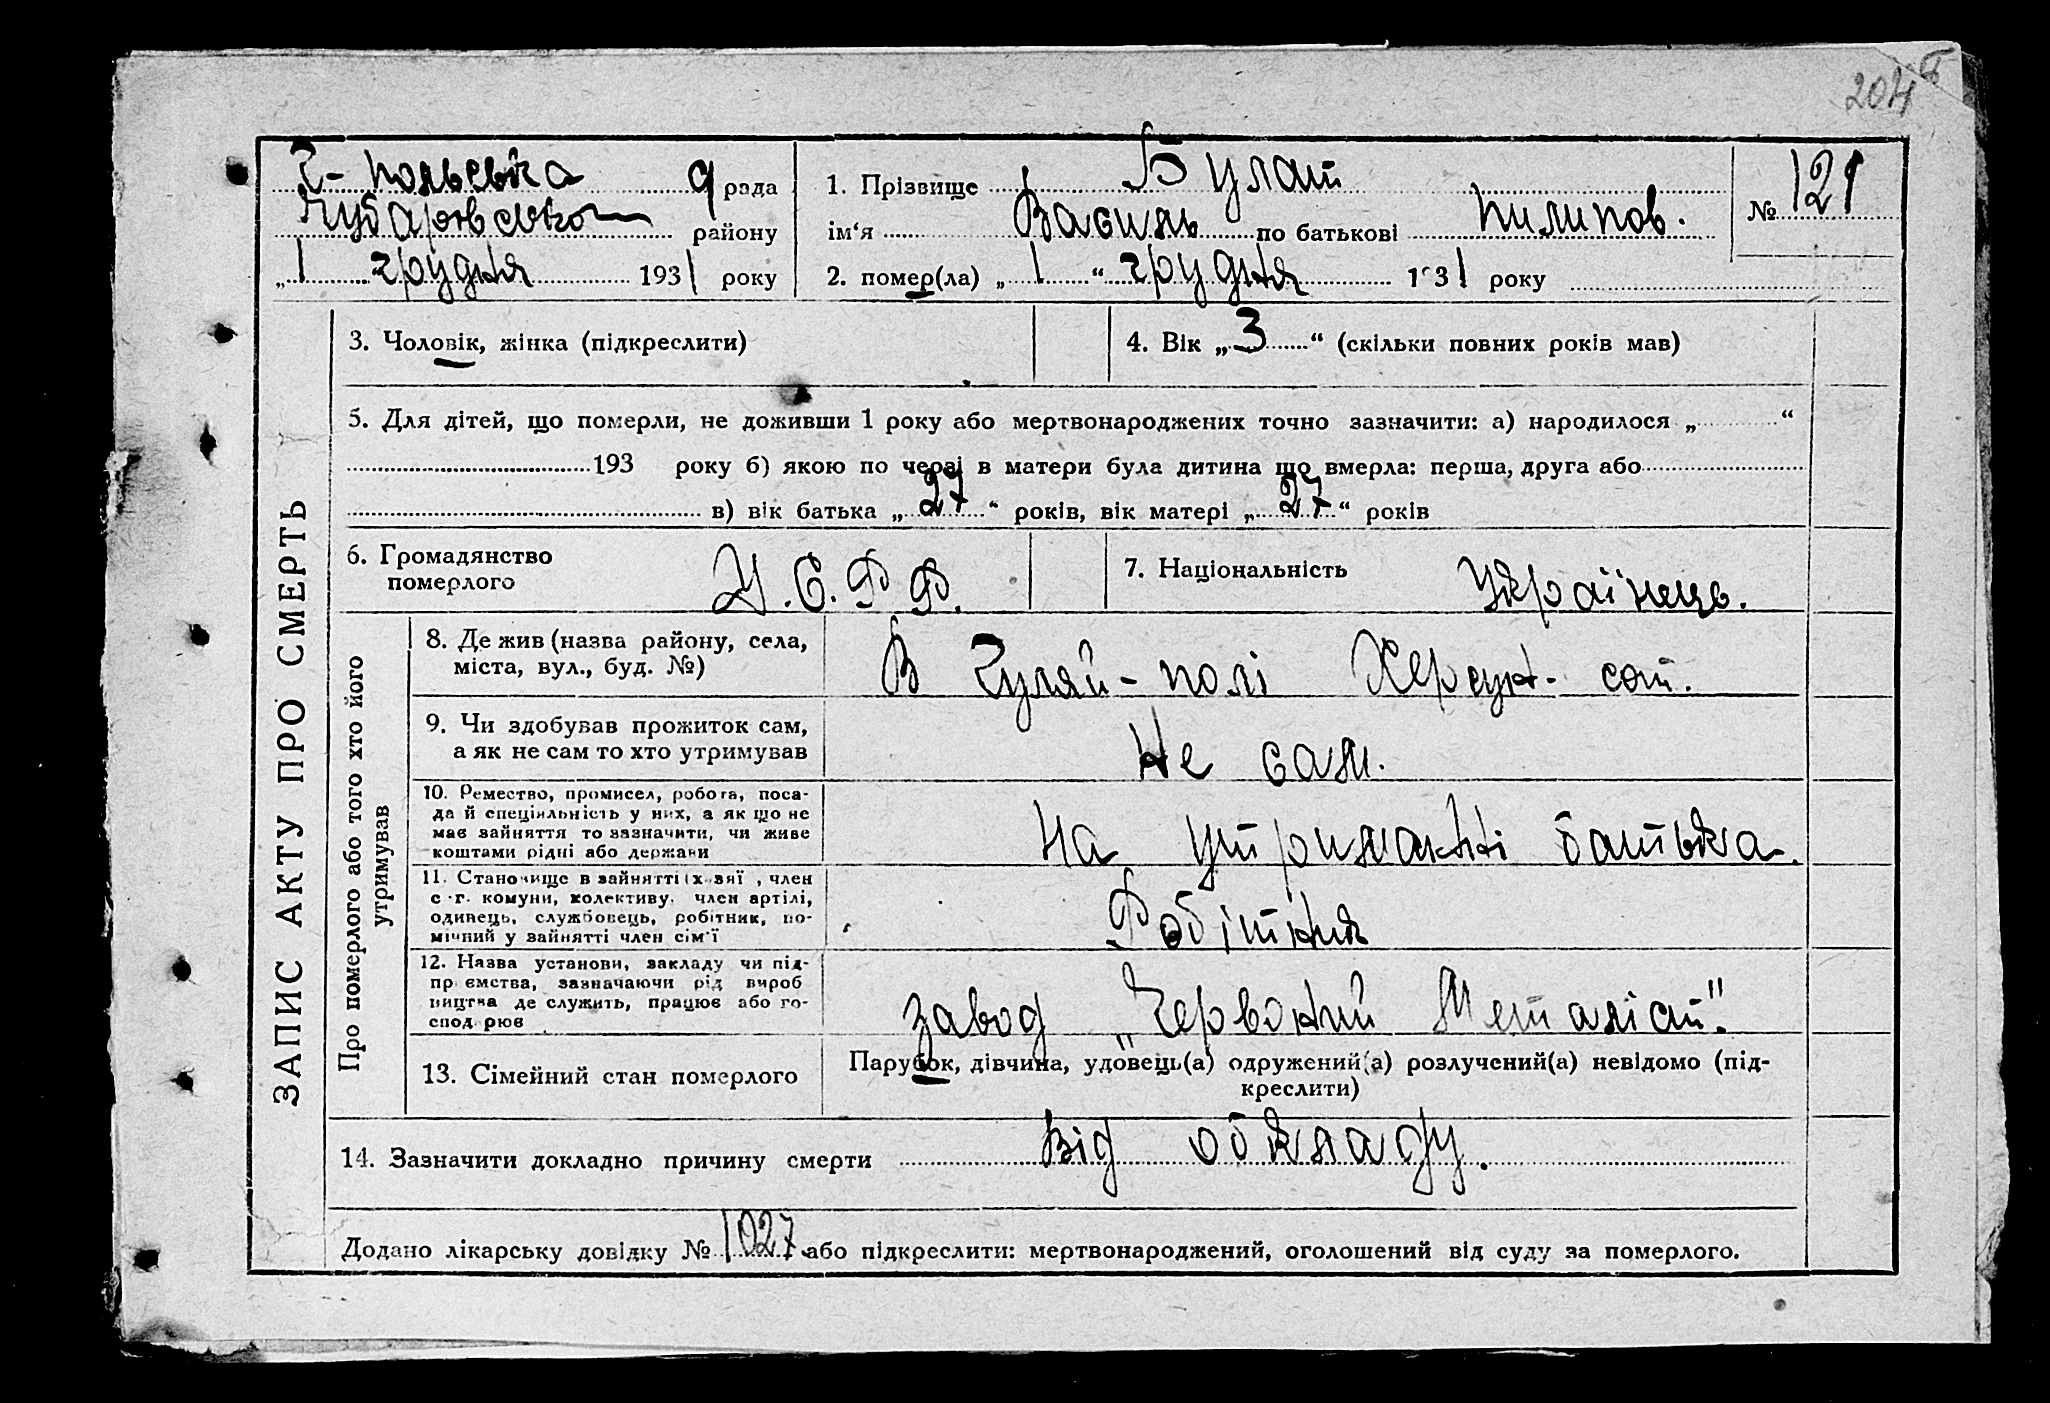 204
Г-польська рада
Чубарівського району
„1 грудня 1931 року
1. Прізвище Булат
ім‘я Василь по батькові Пилипов.
2. помер(ла) „1“ грудня 1931 року
№ 121
ЗАПИС АКТУ ПРО СМЕРТЬ
3. Чоловік, жінка (підкреслити)
4. Вік „3“ (скільки повних років мав)
5. Для дітей, що померли, не доживши 1 року або мертвонароджених точно зазначити: а) народилося „ “
193 року б) якою по черзі в матери була дитина що вмерла: перша, друга або
в) вік батька „27“ років, вік матері „27“ років
6. Громадянство
померлого
У.С.Р.Р.
7. Національність Українець.
Про померлого або того хто його
утримував
8. Де жив (назва району, села,
міста, вул., буд. №)
В Гуляй-полі Херсун. сот.
9. Чи здобував прожиток сам,
а як не сам то хто утримував
Не сам.
10. Ремество, промисел, робота, поса-
да й спеціяльність у них, а як що не
має зайняття то зазначити, чи живе
коштами рідні або держави
На утриманні батька.
11. Становище в зайнятті (хазяї, член
с.-г. комуни, колективу, член артілі,
одинець, службовець, робітник, по-
мічний у зайнятті член сім'ї
Робітник
12. Назва установи, закладу чи під-
приємства, зазначаючи рід вироб
ництва де служить, працює або го-
сподарює
завод „Червоний Металіст".
13. Сімейний стан померлого
Парубок, дівчина, удовець(а) одружений(а) розлучений(а) невідомо (під-
креслити)
14. Зазначити докладно причину смерти Від обкладу.
Додано лікарську довідку № 1027 або підкреслити: мертвонароджений, оголошений від суду за померлого.